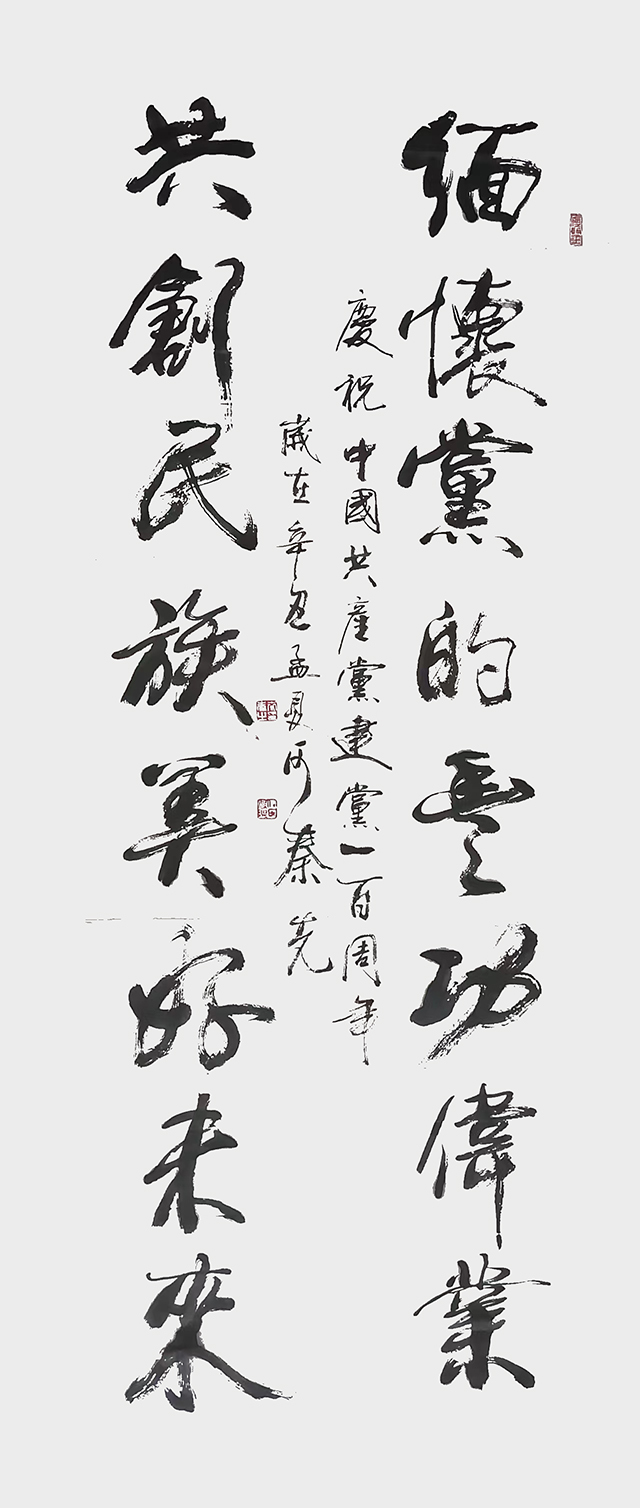 緬懷黨的豐功偉業
慶祝中國共產黨建黨一百周年
歲在辛丑孟夏月秦先
共創民族美好未來